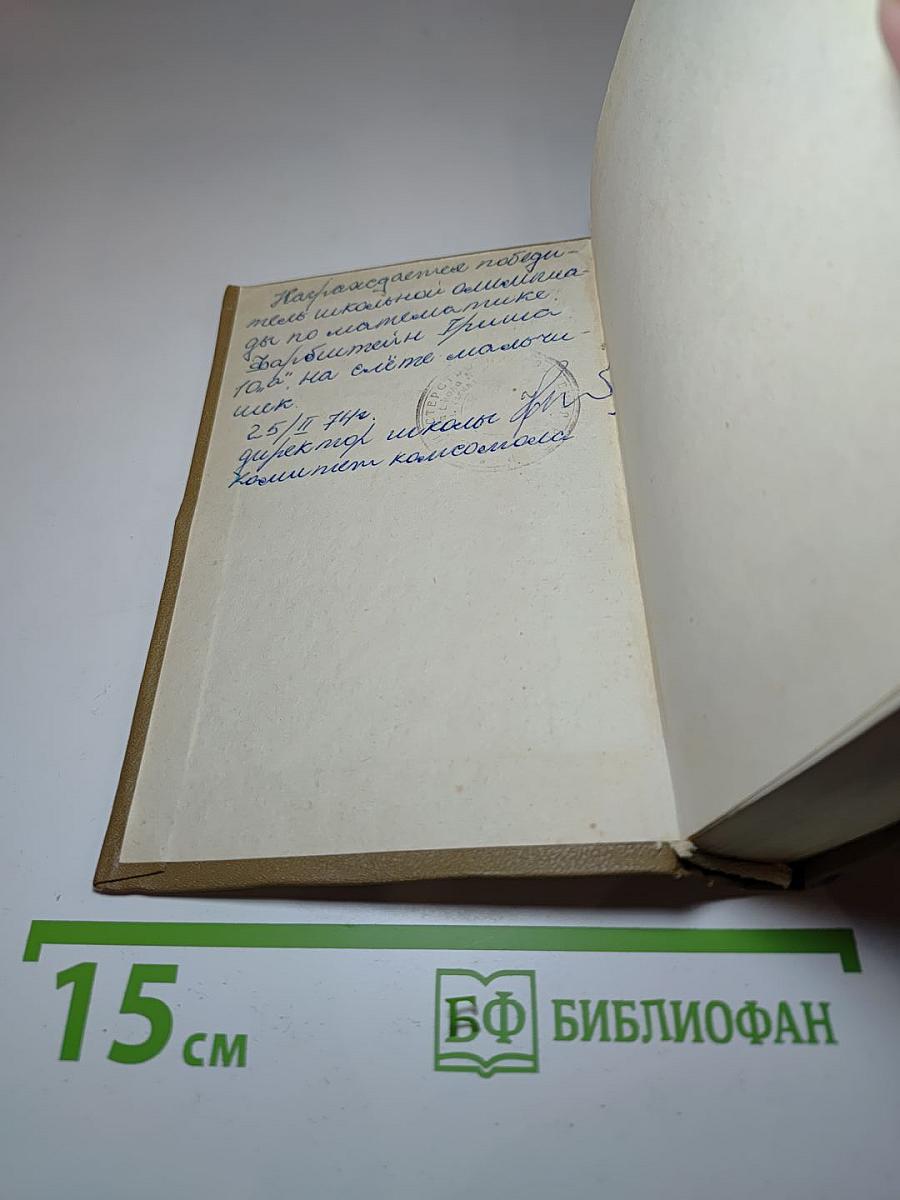 Награждается победи-
тель школьной олимпиа-
ды по математике:
Фарбштейн Гриша
10„а". на слёте мальчи-
шек.
25/II 74г.
директор школы
Комитет комсомола
15 см
БФ БИБЛИОФАН